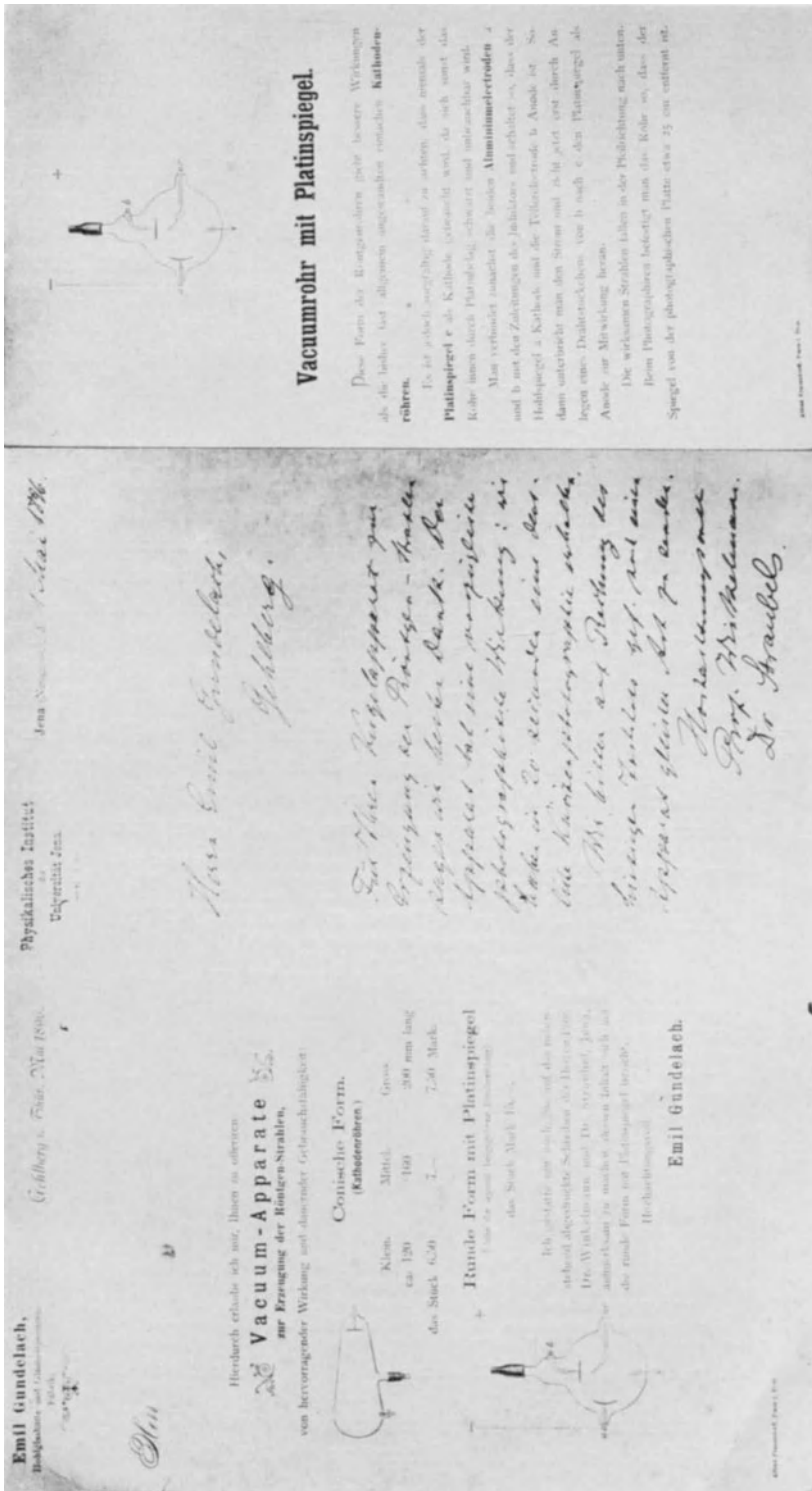 Emil Gundelach,
Gehlberg i. Thür., Mai 1896.
Hierdurch erlaube ich mir, Ihnen zu offeriren
Vacuum-Apparate
zur Erzeugung der Röntgen-Strahlen,
von hervorragender Wirkung und dauernder Gebrauchsfähigkeit:
Conische Form.
(Kathodenröhren.)
Klein. Mittel. Gross.
ca. 120 160 200 mm lang
das Stück 6,50 7.— 7,50 Mark.
Runde Form mit Platinspiegel
das Stück Mark
Ich gestatte mir noch, Sie auf das neben-
stehend abgedruckte Schreiben der Herren Prof.
Dr. Winkelmann und Dr. Straubel, Jena,
aufmerksam zu machen, dessen Inhalt sich auf
die runde Form mit Platinspiegel bezieht.
Hochachtungsvoll
Emil Gundelach.
Physikalisches Institut
der
Universität Jena
Jena Mai 1896.
Herrn Emil Gundelach,
Gehlberg.
Für Ihren Kugelapparat zur
Erzeugung der Röntgen-Strahlen
sagen wir besten Dank. Der
Apparat hat eine vorzügliche
photographische Wirkung; wir
haben in 20 Secunden eine
Händephotographie erhalten.
Wir bitten auf Rechnung des
hiesigen Institutes noch einen
Apparat gleicher Art zu senden.
Hochachtungsvoll
Prof. Winkelmann.
Dr. Straubel.
Vacuumrohr mit Platinspiegel.
Diese Form der Röntgenröhren giebt bessere Wirkungen
als die bisher fast allgemein angewandten conischen Kathoden-
röhren.
Es ist jedoch sorgfältig darauf zu achten, dass niemals der
Platinspiegel c als Kathode gebraucht wird, da sich sonst das
Rohr innen durch Platinbelag schwärzt und unbrauchbar wird.
Man verbindet zunächst die beiden Aluminiumelectroden a
und b mit den Zuleitungen des Inductors und schaltet so, dass der
Hohlspiegel a Kathode und die Tellerelectrode b Anode ist. So-
dann unterbricht man den Strom und zieht jetzt erst durch An-
legen eines Drahtstückchens von b nach c den Platinspiegel als
Anode zur Mitwirkung heran.
Die wirksamen Strahlen fallen in der Pfeilrichtung nach unten.
Beim Photographieren befestigt man das Rohr so, dass der
Spiegel von der photographischen Platte etwa 25 cm entfernt ist.